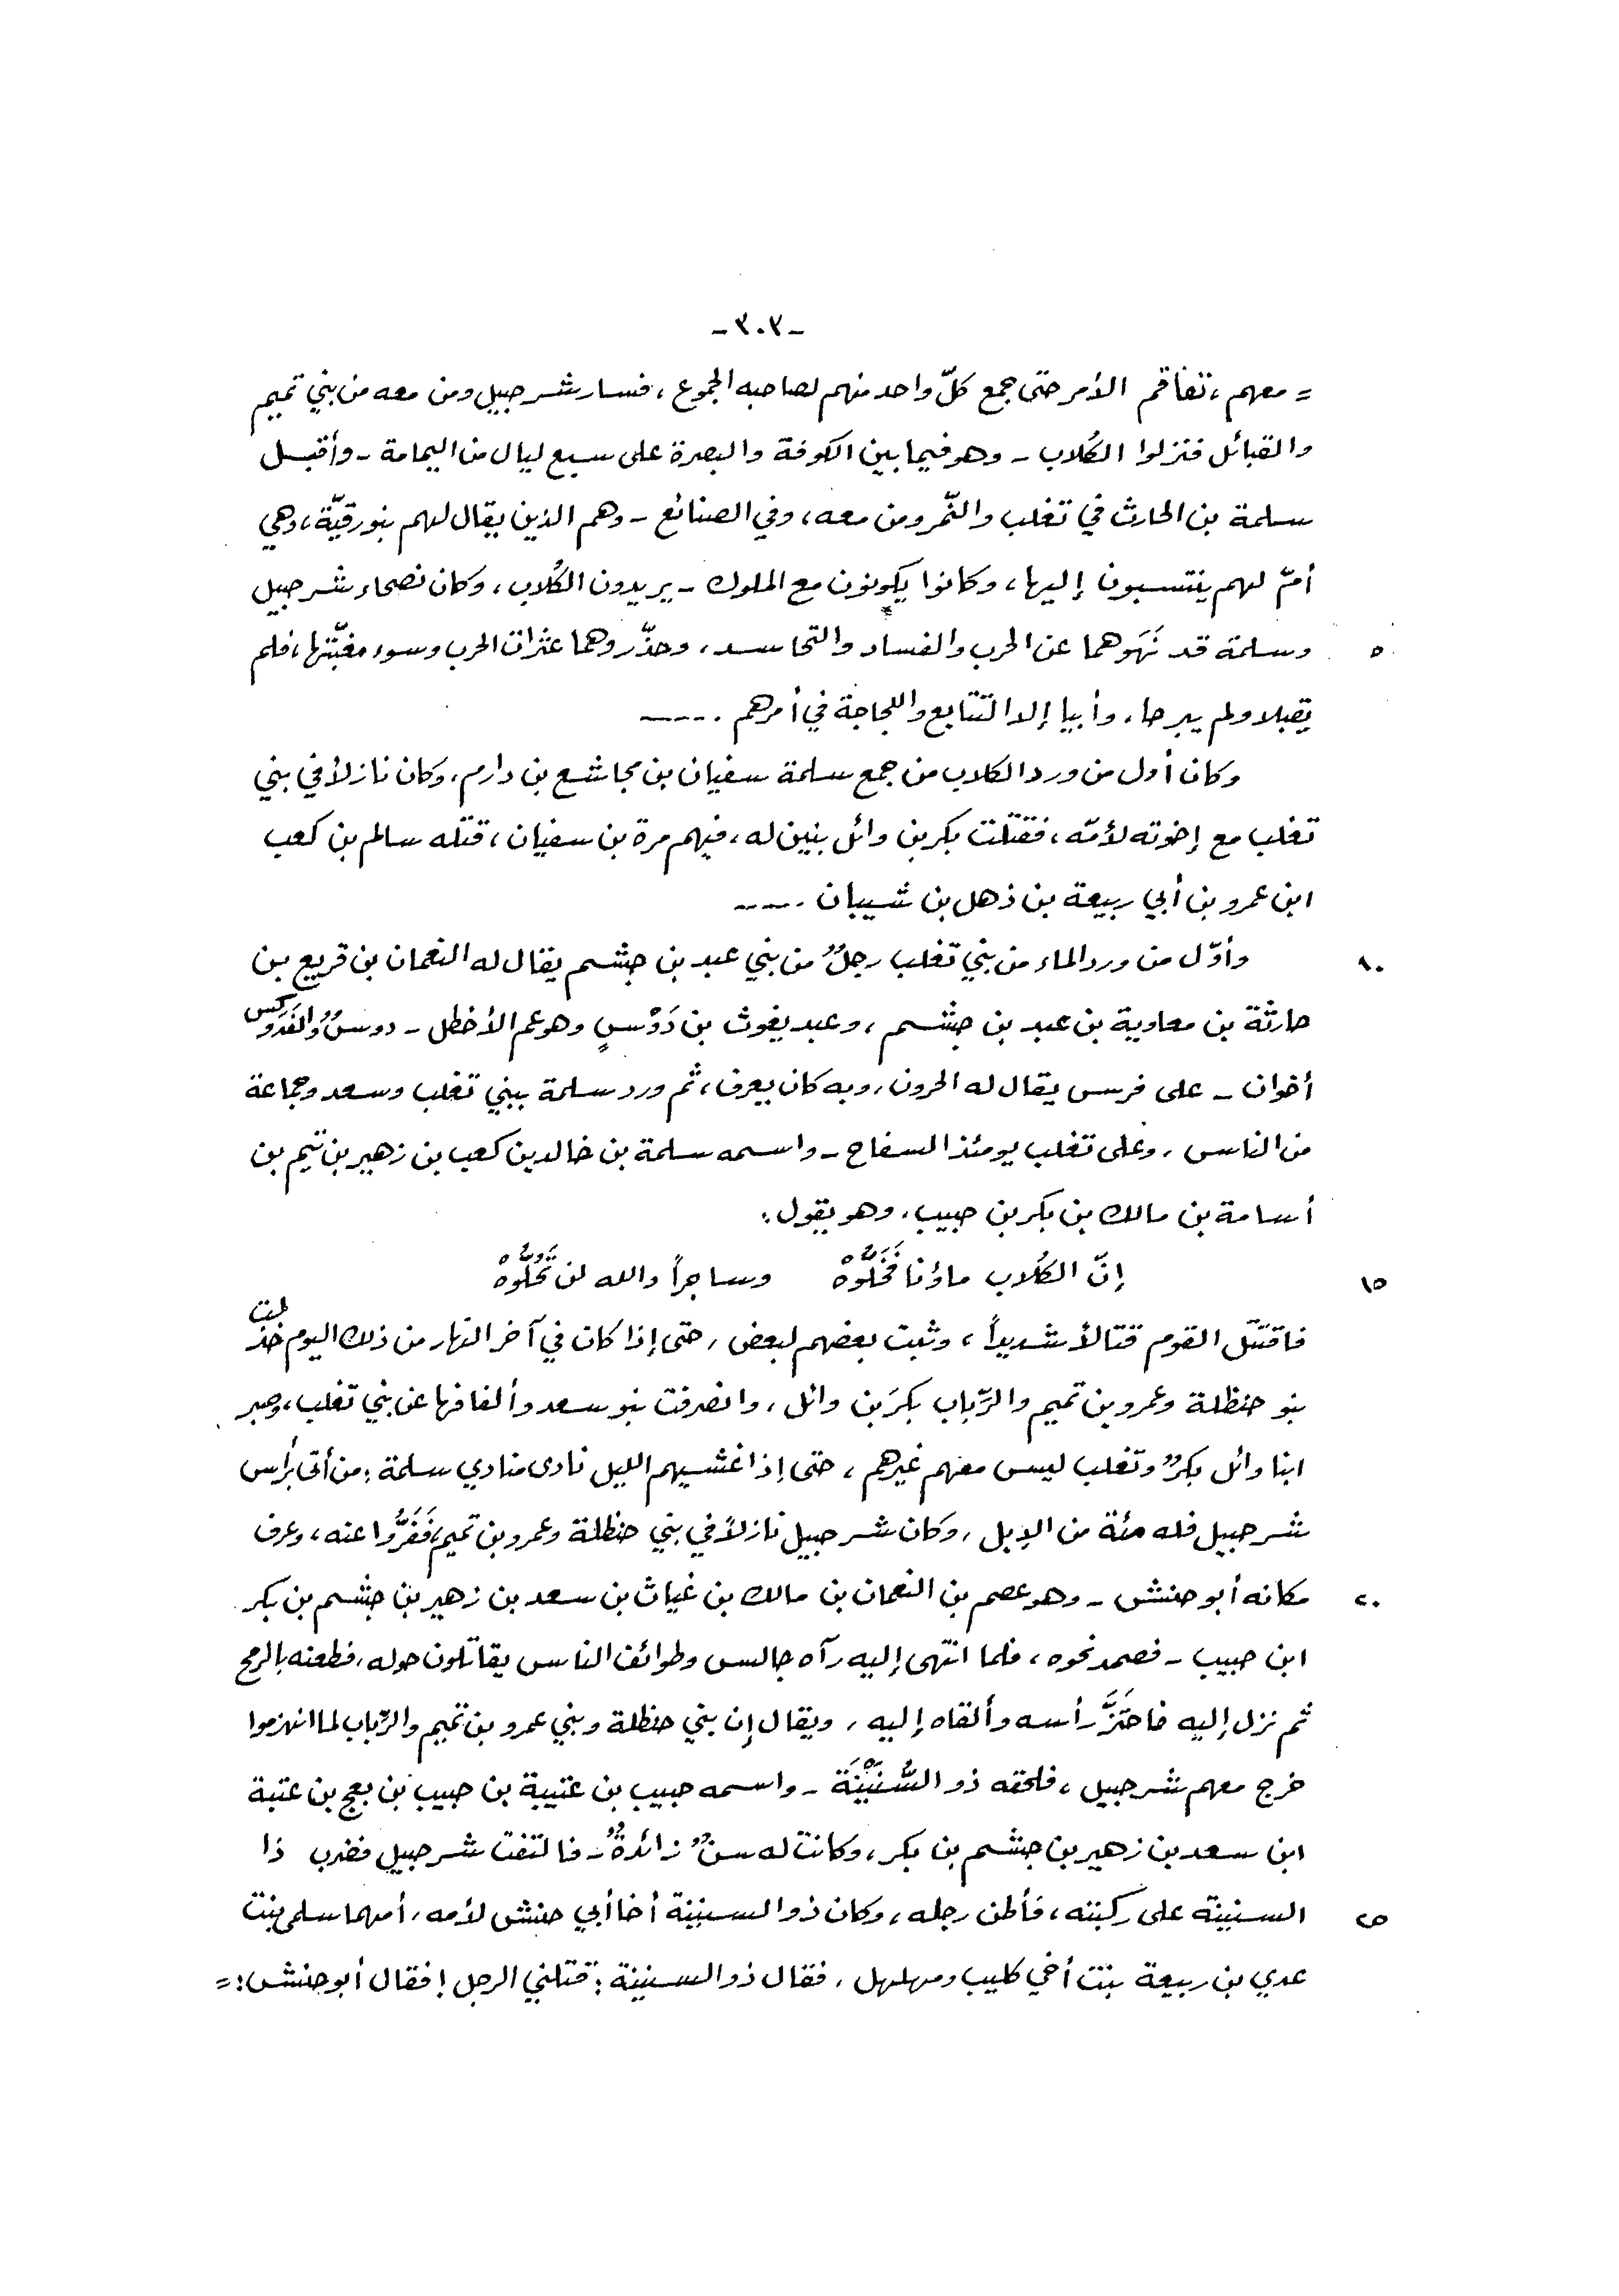 -٣٠٣-
= معهم، تفاقم الأمر حتى جمع كلّ واحد منهم لصاحبه الجموع، فسار شرحبيل ومن معه من بني تميم
والقبائل فنزلوا الكُلاب - وهو فيما بين الكوفة والبصرة على سبع ليال من اليمامة - وأقبل
سلمة بن الحارث في تغلب والنّمر ومن معه، وفي الصنائع - وهم الذين يقال لهم بنو رقيّة، وهي
أمّ لهم ينتسبون إليها، وكانوا يكونون مع الملوك - يريدون الكُلاب، وكان نصحاء شرحبيل
٥ وسلمة قد نَهَوهما عن الحرب والفساد والتحاسد، وحذّروهما عثرات الحرب وسوء مغبّتها، فلم
يقبلا ولم يبرحا، وأبيا إلا التتابع واللجاجة في أمرهم .----
وكان أول من ورد الكلاب من جمع سلمة سفيان بن مجاشع بن دارم، وكان نازلاً في بني
تغلب مع إخوته لأمّه، فقتلت بكر بن وائل بنين له، فيهم مرة بن سفيان، قتله سالم بن كعب
ابن عمرو بن أبي ربيعة بن ذهل بن شيبان .----
١٠ وأوّل من ورد الماء من بني تغلب رجلٌ من بني عبد بن جشم يقال له النعمان بن قريع بن
حارثة بن معاوية بن عبد بن جشم، وعبد يغوث بن دَوْسٍ وهو عم الأخطل - دوسٌ والفَدَوكس
أخوان - على فرس يقال له الحرون، وبه كان يعرف، ثم ورد سلمة ببني تغلب وسعد وجماعة
من الناس، وعلى تغلب يومئذ السفاح - واسمه سلمة بن خالد بن كعب بن زهير بن تيم بن
أسامة بن مالك بن بكر بن حبيب، وهو يقول:
١٥ إنّ الكُلاب ماؤنا فَخَلُّوهْ وساجراً والله لن تَحُلُّوهْ
فاقتتل القوم قتالاً شديداً، وثبت بعضهم لبعض، حتى إذا كان في آخر النهار من ذلك اليوم خذلت
بنو حنظلة وعمرو بن تميم والرّباب بكرَ بن وائل، وانصرفت بنو سعد وألفافها عن بني تغلب، وصبر
ابنا وائل بكرٌ وتغلب ليس معهم غيرهم، حتى إذا غشيهم الليل نادى منادي سلمة: من أتى برأس
شرحبيل فله مئة من الإبل، وكان شرحبيل نازلاً في بني حنظلة وعمرو بن تميم، فَفَرُّوا عنه، وعرف
٢٠ مكانه أبو حنش - وهو عصم بن النعمان بن مالك بن غياث بن سعد بن زهير بن جشم بن بكر
ابن حبيب - فصمد نحوه، فلما انتهى إليه رآه جالس وطوائف الناس يقاتلون حوله، فطعنه بالرمح
ثم نزل إليه فاحتَزَّ رأسه وألقاه إليه، ويقال إن بني حنظلة وبني عمرو بن تميم والرّباب لما انهزموا
خرج معهم شرحبيل، فلحقه ذو السُّنَيْنَة - واسمه حبيب بن عتيبة بن حبيب بن بعج بن عتبة
ابن سعد بن زهير بن جشم بن بكر، وكانت له سنٌّ زائدةٌ - فالتفت شرحبيل فضرب ذا
٢٥ السنينة على ركبته، فأطن رجله، وكان ذو السنينة أخا أبي حنش لأمه، أمهما سلمى بنت
عدي بن ربيعة بنت أخي كليب ومهلهل، فقال ذو السنينة: قتلني الرجل! فقال أبو حنش: =